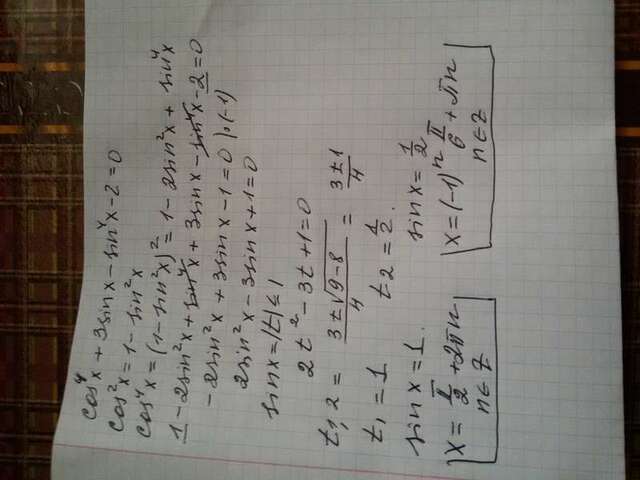 cos⁴x + 3sinx - sin⁴x - 2 = 0
cos²x = 1 - sin²x
cos⁴x = (1 - sin²x)² = 1 - 2sin²x + sin⁴x
1 - 2sin²x + sin⁴x + 3sinx - sin⁴x - 2 = 0
-2sin²x + 3sinx - 1 = 0 |·(-1)
2sin²x - 3sinx + 1 = 0
sinx = |t| ≤ 1
2t² - 3t + 1 = 0
t₁,₂ = (3 ± √(9-8))/4 = (3 ± 1)/4
t₁ = 1 t₂ = 1/2.
sinx = 1. sinx = 1/2
x = π/2 + 2πn x = (-1)ⁿ π/6 + πn
n ∈ Z n ∈ Z